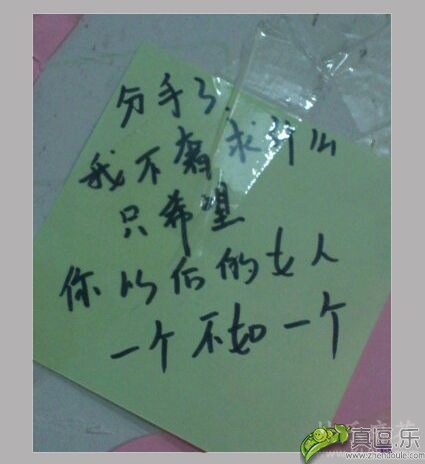 分手了.
我不奢求什么
只希望
你以后的女人
一个不如一个
真逗.乐
www.zhendoule.com